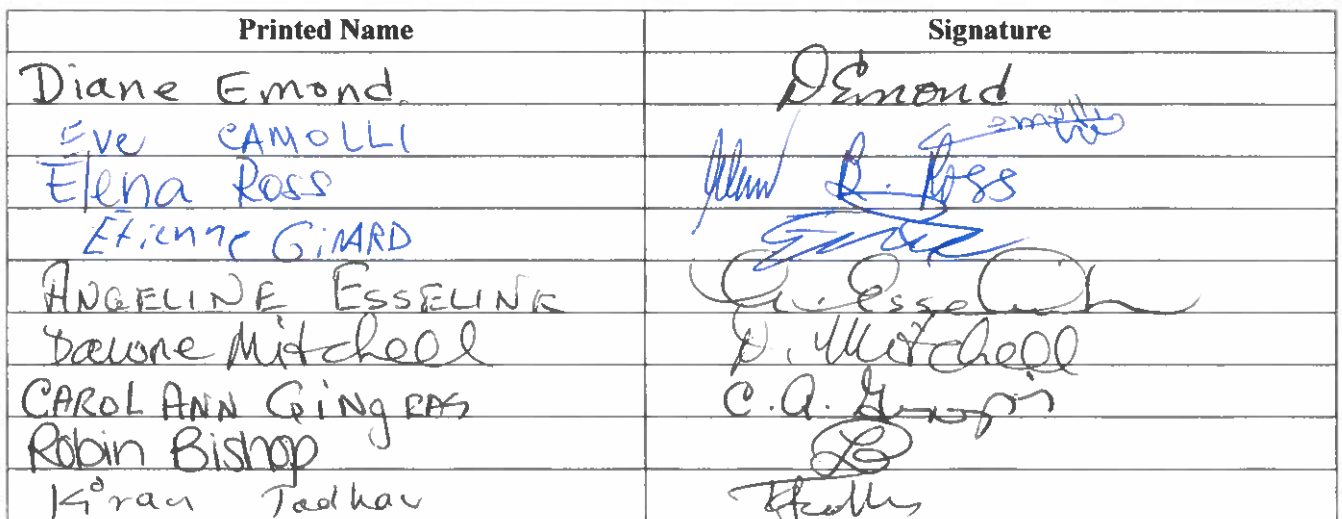 Printed Name Signature
Diane Emond. DEmond
Eve CAMOLLI
Elena Ross R. Ross
Etienne GiRARD
ANGELINE ESSELINK A. Esselink
Mitchell D. Mitchell
CAROL ANN GiNgRAS C.A. Gingras
Robin Bishop
Kiran Jadhav